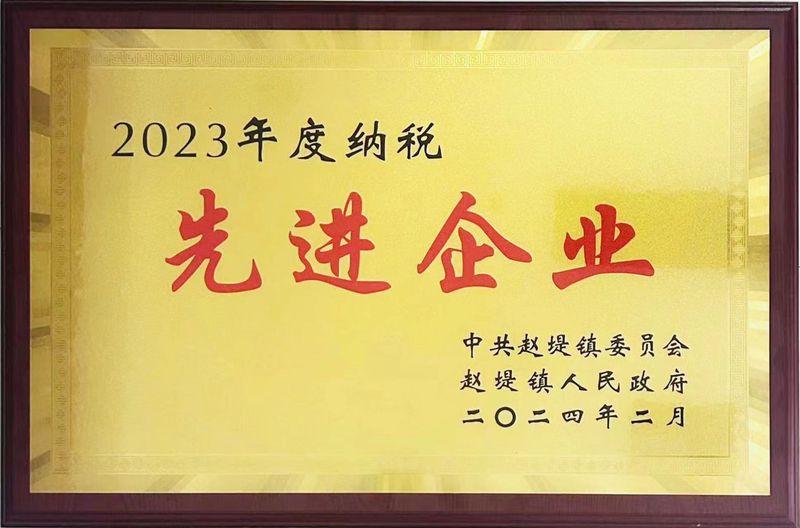 2023年度纳税
先进企业
中共赵堤镇委员会
赵堤镇人民政府
二〇二四年二月